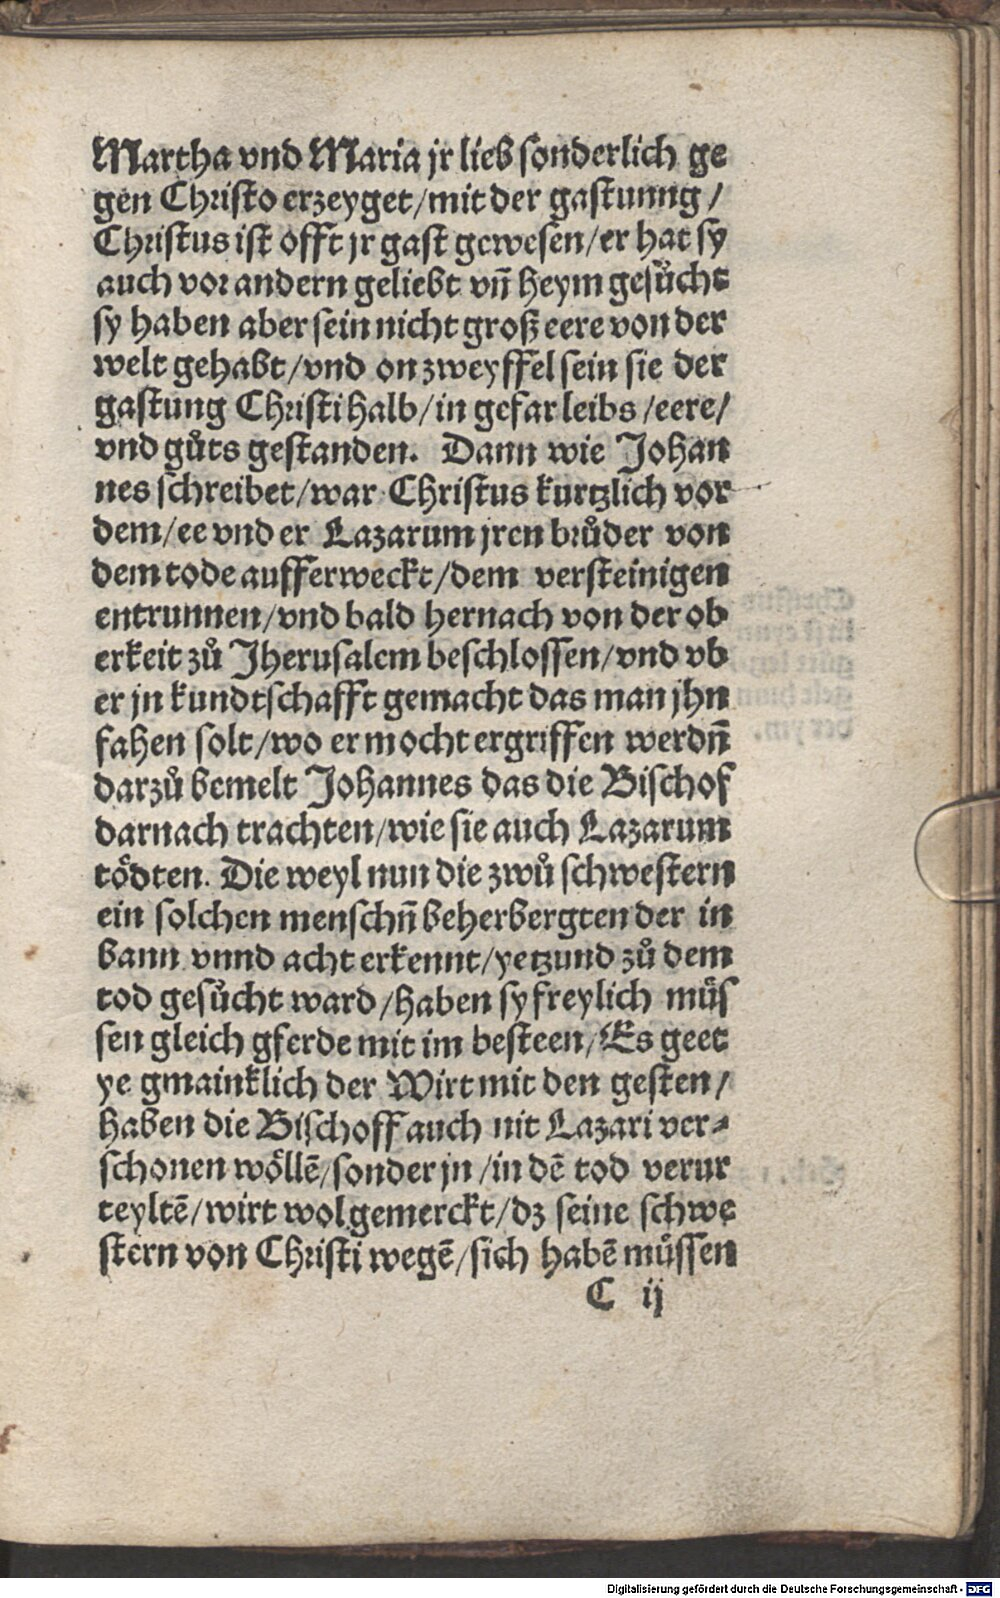 Martha vnd Maria jr lieb sonderlich ge
gen Christo erzeyget/mit der gastunng/
Christus ist offt jr gast gewesen/er hat sy
auch vor andern geliebt vn̄ heym gesůcht
sy haben aber sein nicht groß eere von der
welt gehabt/vnd on zweyffel sein sie der
gastung Christi halb/in gefar leibs/eere/
vnd gůts gestanden. Dann wie Johan
nes schreibet/war Christus kurtzlich vor
dem/ee vnd er Lazarum jren brůder von
dem tode aufferweckt/dem versteinigen
entrunnen/vnd bald hernach von der ob
erkeit zů Jherusalem beschlossen/vnd vb
er jn kundtschafft gemacht das man jhn
fahen solt/wo er mocht ergriffen werdn̄
darzů bemelt Johannes das die Bischof
darnach trachten/wie sie auch Lazarum
tödten. Die weyl nun die zwů schwestern
ein solchen menschn̄ beherbergten der in
bann vnnd acht erkennt/yetzund zů dem
tod gesůcht ward/haben sy freylich müs
sen gleich gferde mit im besteen/Es geet
ye gmainklich der Wirt mit den gesten/
haben die Bischoff auch nit Lazari ver⸗
schonen wöllē/sonder jn/in dē tod verur
teyltē/wirt wol gemerckt/dz seine schwe
stern von Christi wegē/sich habē müssen
C ij
Digitalisierung gefördert durch die Deutsche Forschungsgemeinschaft - DFG